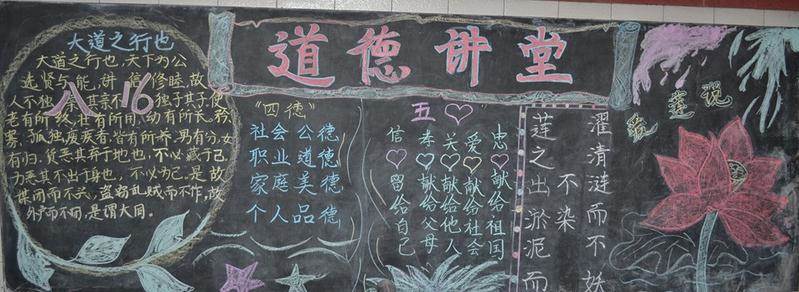 道德讲堂
大道之行也
大道之行也,天下为公
选贤与能,讲信修睦,故
人不独其亲独子其子使
八16
老有所终,壮有所用,幼有所长,矜
寡,孤独,废疾者,皆有所养,男有分,女
有归,货恶其弃于地也,不必藏于己,
力恶其不出于身也,不必为己,是故
谋闭而不兴,盗窃乱贼而不作,故
外户而不闭,是谓大同。
"四德"
社会公德
职业道德
家庭美德
个人品德
五♡
忠♡献给祖国
爱♡献给社会
关♡献给他人
孝♡献给父母
信♡留给自己
爱莲说
莲之出淤泥而
不染
濯清涟而不妖